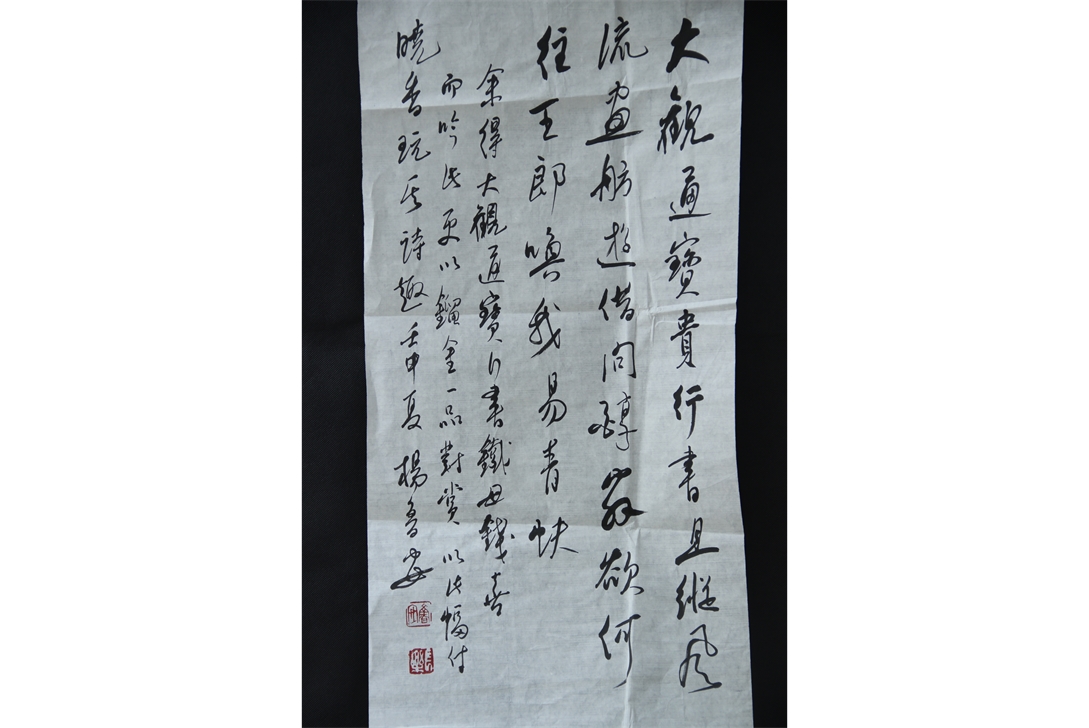 大觀通寶貴行書且縱風
流畫舫遊借問醇翁欲何
往王郎喚我易青蚨
余得大觀通寶行書鐵母錢喜
而吟此更以鎦金一品對賞以此幅付
曉春玩其詩趣壬申夏楊魯安